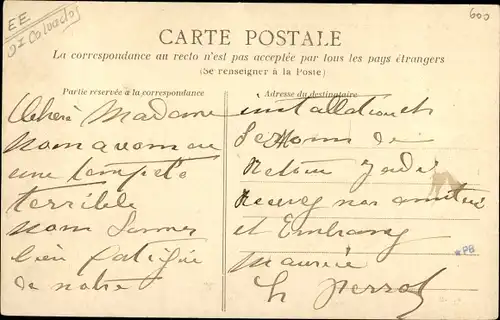 EE
600
CARTE POSTALE
La correspondance au recto n'est pas acceptée par tous les pays étrangers
(Se renseigner à la Poste)
Partie réservée à la correspondance
Chère Madame
nous avons eu
une tempete
terrible
nous sommes
bien fatigué
de notre
Adresse du destinataire
installation et
de
Retour
Recevez nos amitiés
et Embrassez
Maurice
h Perrot
*PB